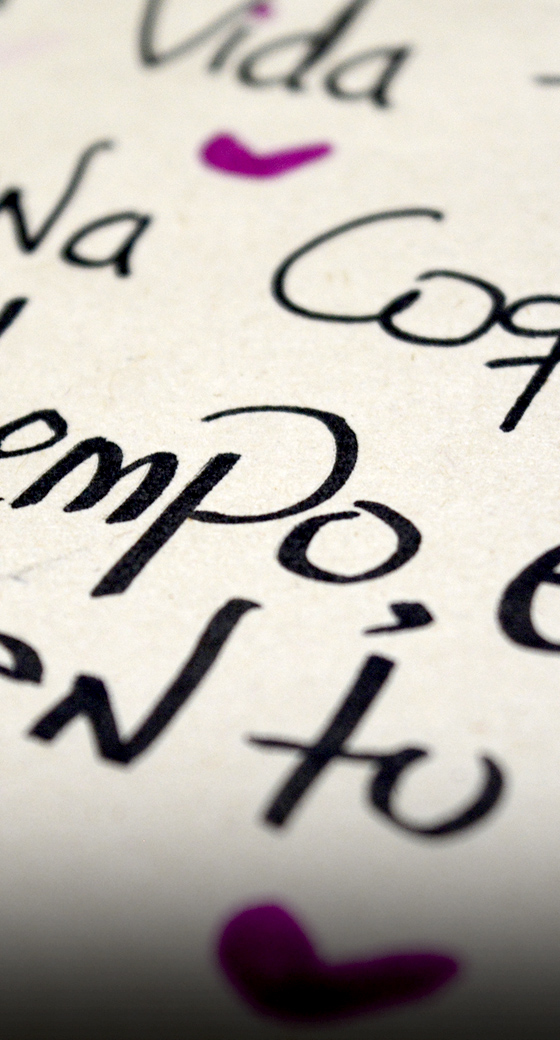 Vida -
Na Coq
empo, e
en tu